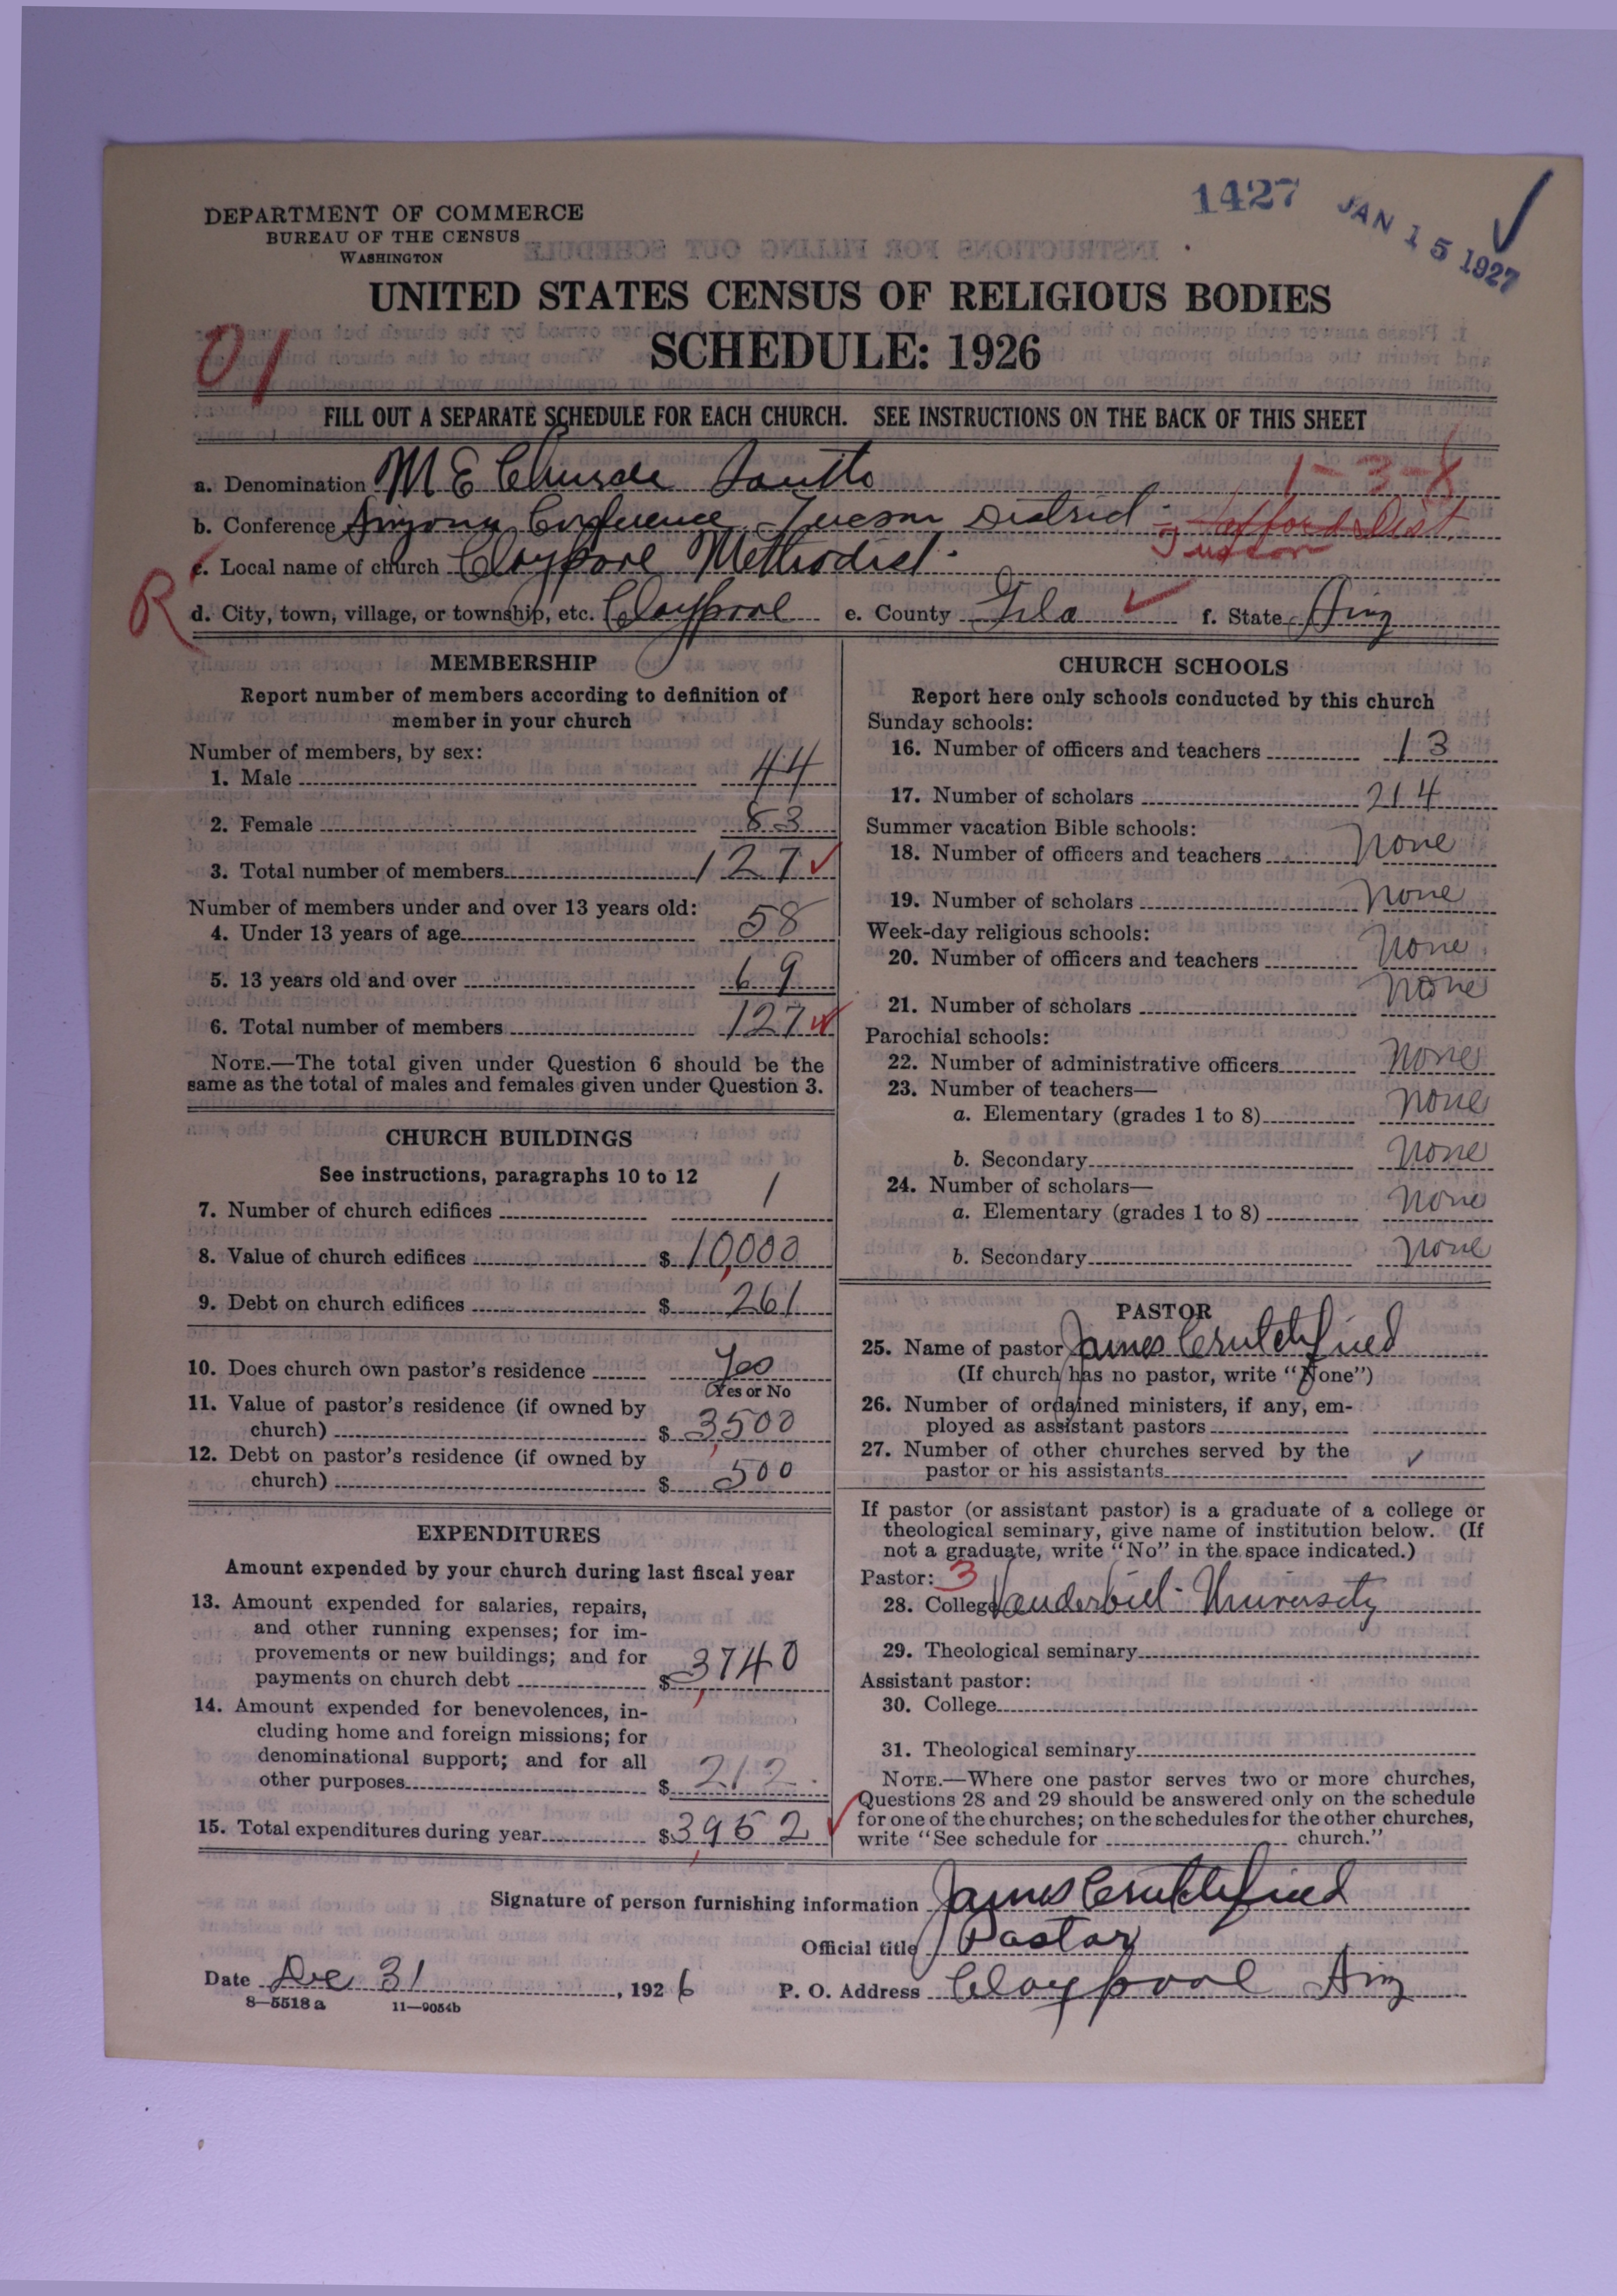 1427 JAN 15 1927 ✓
DEPARTMENT OF COMMERCE
BUREAU OF THE CENSUS
WASHINGTON
UNITED STATES CENSUS OF RELIGIOUS BODIES
SCHEDULE: 1926
01
FILL OUT A SEPARATE SCHEDULE FOR EACH CHURCH. SEE INSTRUCTIONS ON THE BACK OF THIS SHEET
a. Denomination M E Church South 1-3-8
b. Conference Arizona Conference Tucson District - Safford Dist.
Tucson
c. Local name of church Claypool Methodist
R
d. City, town, village, or township, etc. Claypool e. County Gila ✓ f. State Ariz
MEMBERSHIP
Report number of members according to definition of
member in your church
Number of members, by sex:
1. Male 44
2. Female 83
3. Total number of members 127 ✓
Number of members under and over 13 years old:
4. Under 13 years of age 58
5. 13 years old and over 69
6. Total number of members 127 ✓
NOTE.—The total given under Question 6 should be the
same as the total of males and females given under Question 3.
CHURCH BUILDINGS
See instructions, paragraphs 10 to 12
7. Number of church edifices 1
8. Value of church edifices $ 10,000
9. Debt on church edifices $ 261
10. Does church own pastor's residence Yes
(Yes or No)
11. Value of pastor's residence (if owned by
church) $ 3,500
12. Debt on pastor's residence (if owned by
church) $ 500
EXPENDITURES
Amount expended by your church during last fiscal year
13. Amount expended for salaries, repairs,
and other running expenses; for im-
provements or new buildings; and for
payments on church debt $ 3,740
14. Amount expended for benevolences, in-
cluding home and foreign missions; for
denominational support; and for all
other purposes $ 212
15. Total expenditures during year $ 3,952 ✓
CHURCH SCHOOLS
Report here only schools conducted by this church
Sunday schools:
16. Number of officers and teachers 13
17. Number of scholars 214
Summer vacation Bible schools:
18. Number of officers and teachers None
19. Number of scholars None
Week-day religious schools:
20. Number of officers and teachers None
21. Number of scholars None
Parochial schools:
22. Number of administrative officers None
23. Number of teachers—
a. Elementary (grades 1 to 8) None
b. Secondary None
24. Number of scholars—
a. Elementary (grades 1 to 8) None
b. Secondary None
PASTOR
25. Name of pastor James Crutchfield
(If church has no pastor, write "None")
26. Number of ordained ministers, if any, em-
ployed as assistant pastors
27. Number of other churches served by the
pastor or his assistants ✓
If pastor (or assistant pastor) is a graduate of a college or
theological seminary, give name of institution below. (If
not a graduate, write "No" in the space indicated.)
Pastor: 3
28. College Vanderbilt University
29. Theological seminary
Assistant pastor:
30. College
31. Theological seminary
NOTE.—Where one pastor serves two or more churches,
Questions 28 and 29 should be answered only on the schedule
for one of the churches; on the schedules for the other churches,
write "See schedule for church."
Signature of person furnishing information James Crutchfield
Official title Pastor
Date Dec 31, 1926 P. O. Address Claypool Ariz
8—5518 a 11—9054b